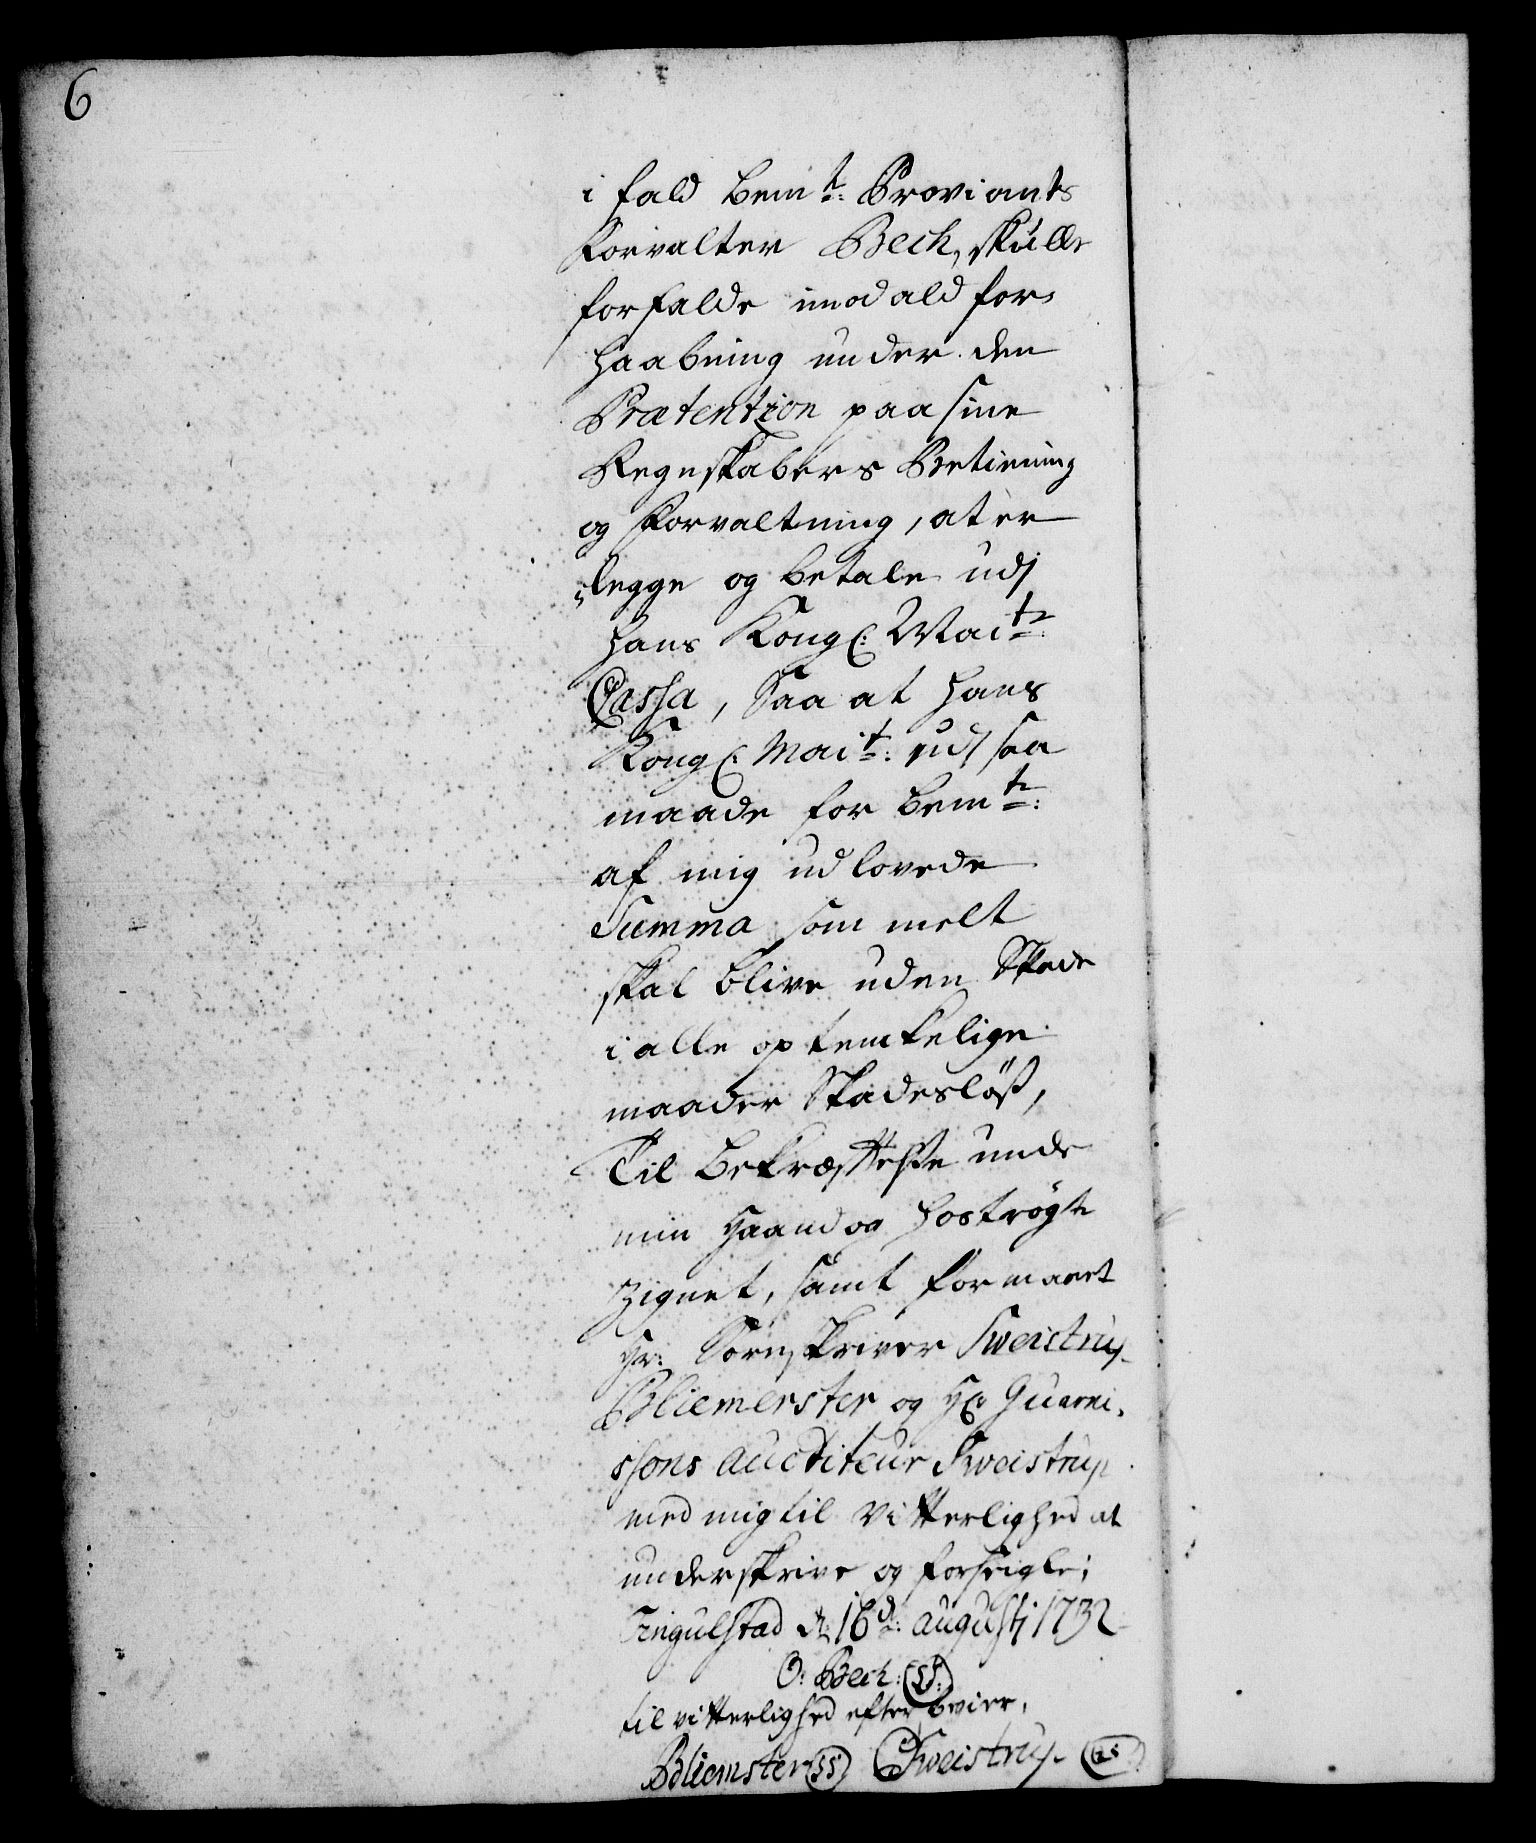 6
i fald bemt: Proviants
Forvalter Bech, skulle
forfalde imod ald for-
haabning under den
Prætention paa sine
Regnskabers Betiening
og Forvaltning, at er
legge og betale udj
hans Kongl: Maits:
Cassa, Saa at hans
Kongl: Mait: udj saa
maade for bemte:
af mig udlovede
Summa som melt
skal blive uden Skade
i alle optenkelige
maader Skadesløs,
Til bekræftelse unde
min Haand og hostrøgte
Zignet, samt formaaet
Hr: Sorenskriver Sweistrup
Bliemester og Hr Guarni-
ssons Auditeur Sweistrup
med mig til Vitterlighed at
underskrive og forseigle;
Tingulstad d: 16de: Augustj 1732
O: Bech: (LS:)
til vitterlighed efter
Bliemster (LS) Sweistrup (LS)